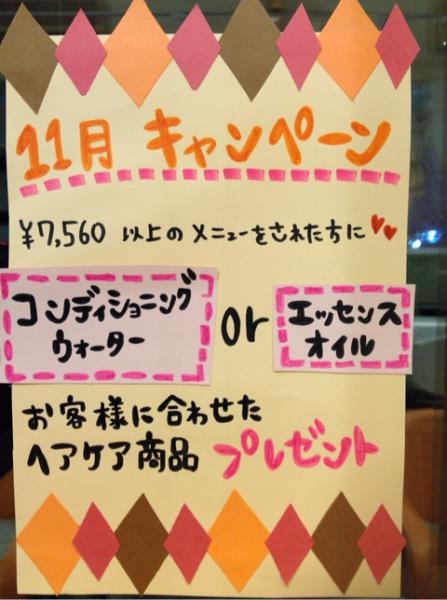 11月 キャンペーン
¥7,560 以上のメニューをされた方に
コンディショニング
ウォーター
or
エッセンス
オイル
お客様に合わせた
ヘアケア商品 プレゼント